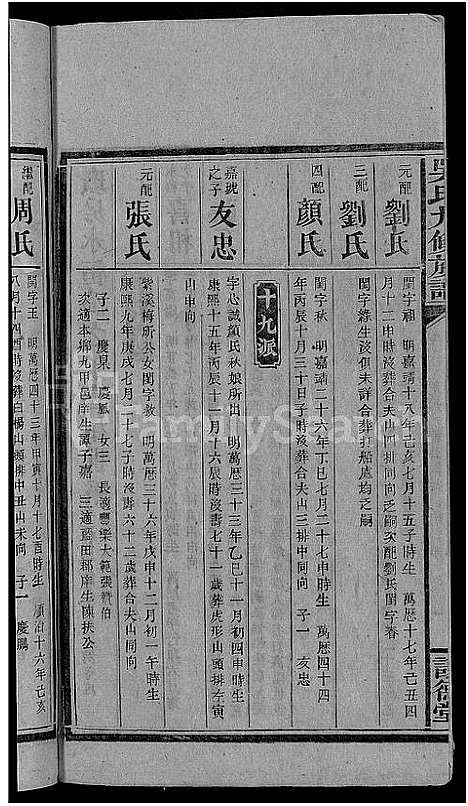 吳氏九修族譜
元配
劉氏
閨字福 明嘉靖十八年己亥七月十五子時生 萬曆十七年己丑四
月十二申時沒葬合夫山四排同向之嗣次配劉氏閨字春
三配
劉氏
閨字綠生沒俱未詳合葬打船虎均之嗣
四配
顏氏
閨字秋 明嘉靖二十六年丁未七月二十七申時生 萬曆四十四
年丙辰十月三十日子時沒葬合夫山三排中同向 子一 友忠
十九派
嘉號
之子
友忠
字心誠顏氏秋娘所出 明萬曆三十三年乙巳十一月初四申時生
康熙十五年丙辰十一月十六辰時沒壽七十一歲葬虎形山頭排左寅
山申向
元配
張氏
紫溪梅所公女閨字歡 明萬曆三十六年戊申十二月初一午時生
康熙九年庚戌七月二十七子時沒壽六十二歲葬合夫山同向
子二 慶泉 慶 女三 長適豐樂大範張贊伯
次適本鄉九甲邑庠生譚子嘉 三適藍田郡庠生陳扶公
繼配
周氏
閨字玉 明萬曆四十三年甲寅十月十七酉時生 順治十六年己亥
八月十四酉時沒葬白楊山頭排中丑山未向 子一 慶鵬
詒儁堂